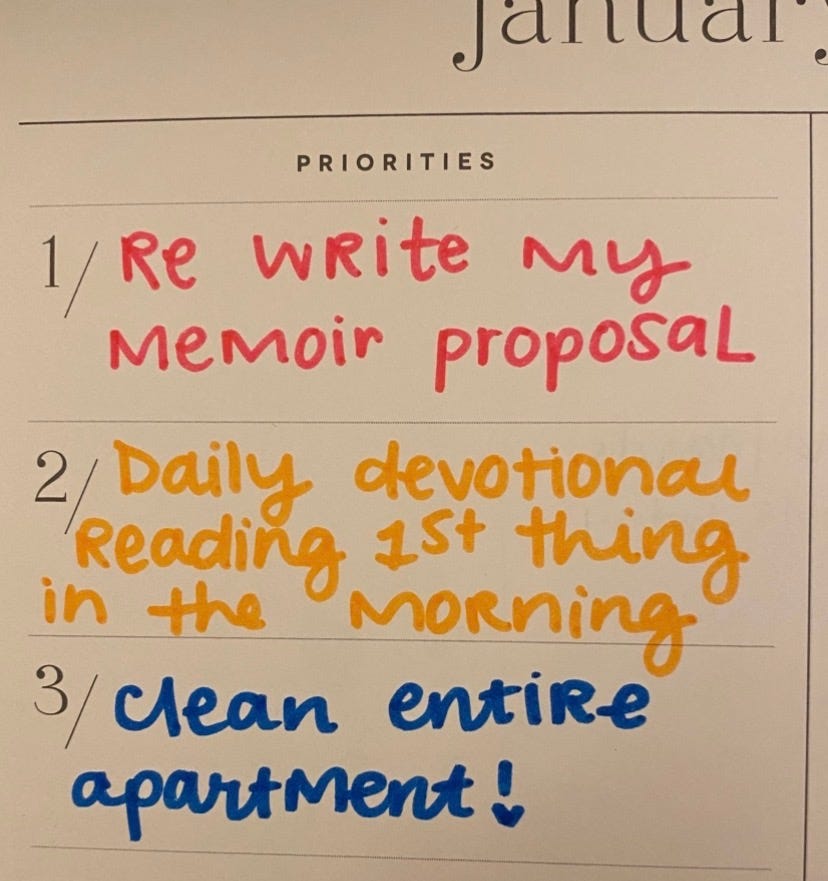 January
PRIORITIES
1/ Re write my
memoir proposal
2/ Daily devotional
Reading 1st thing
in the morning
3/ clean entire
apartment!